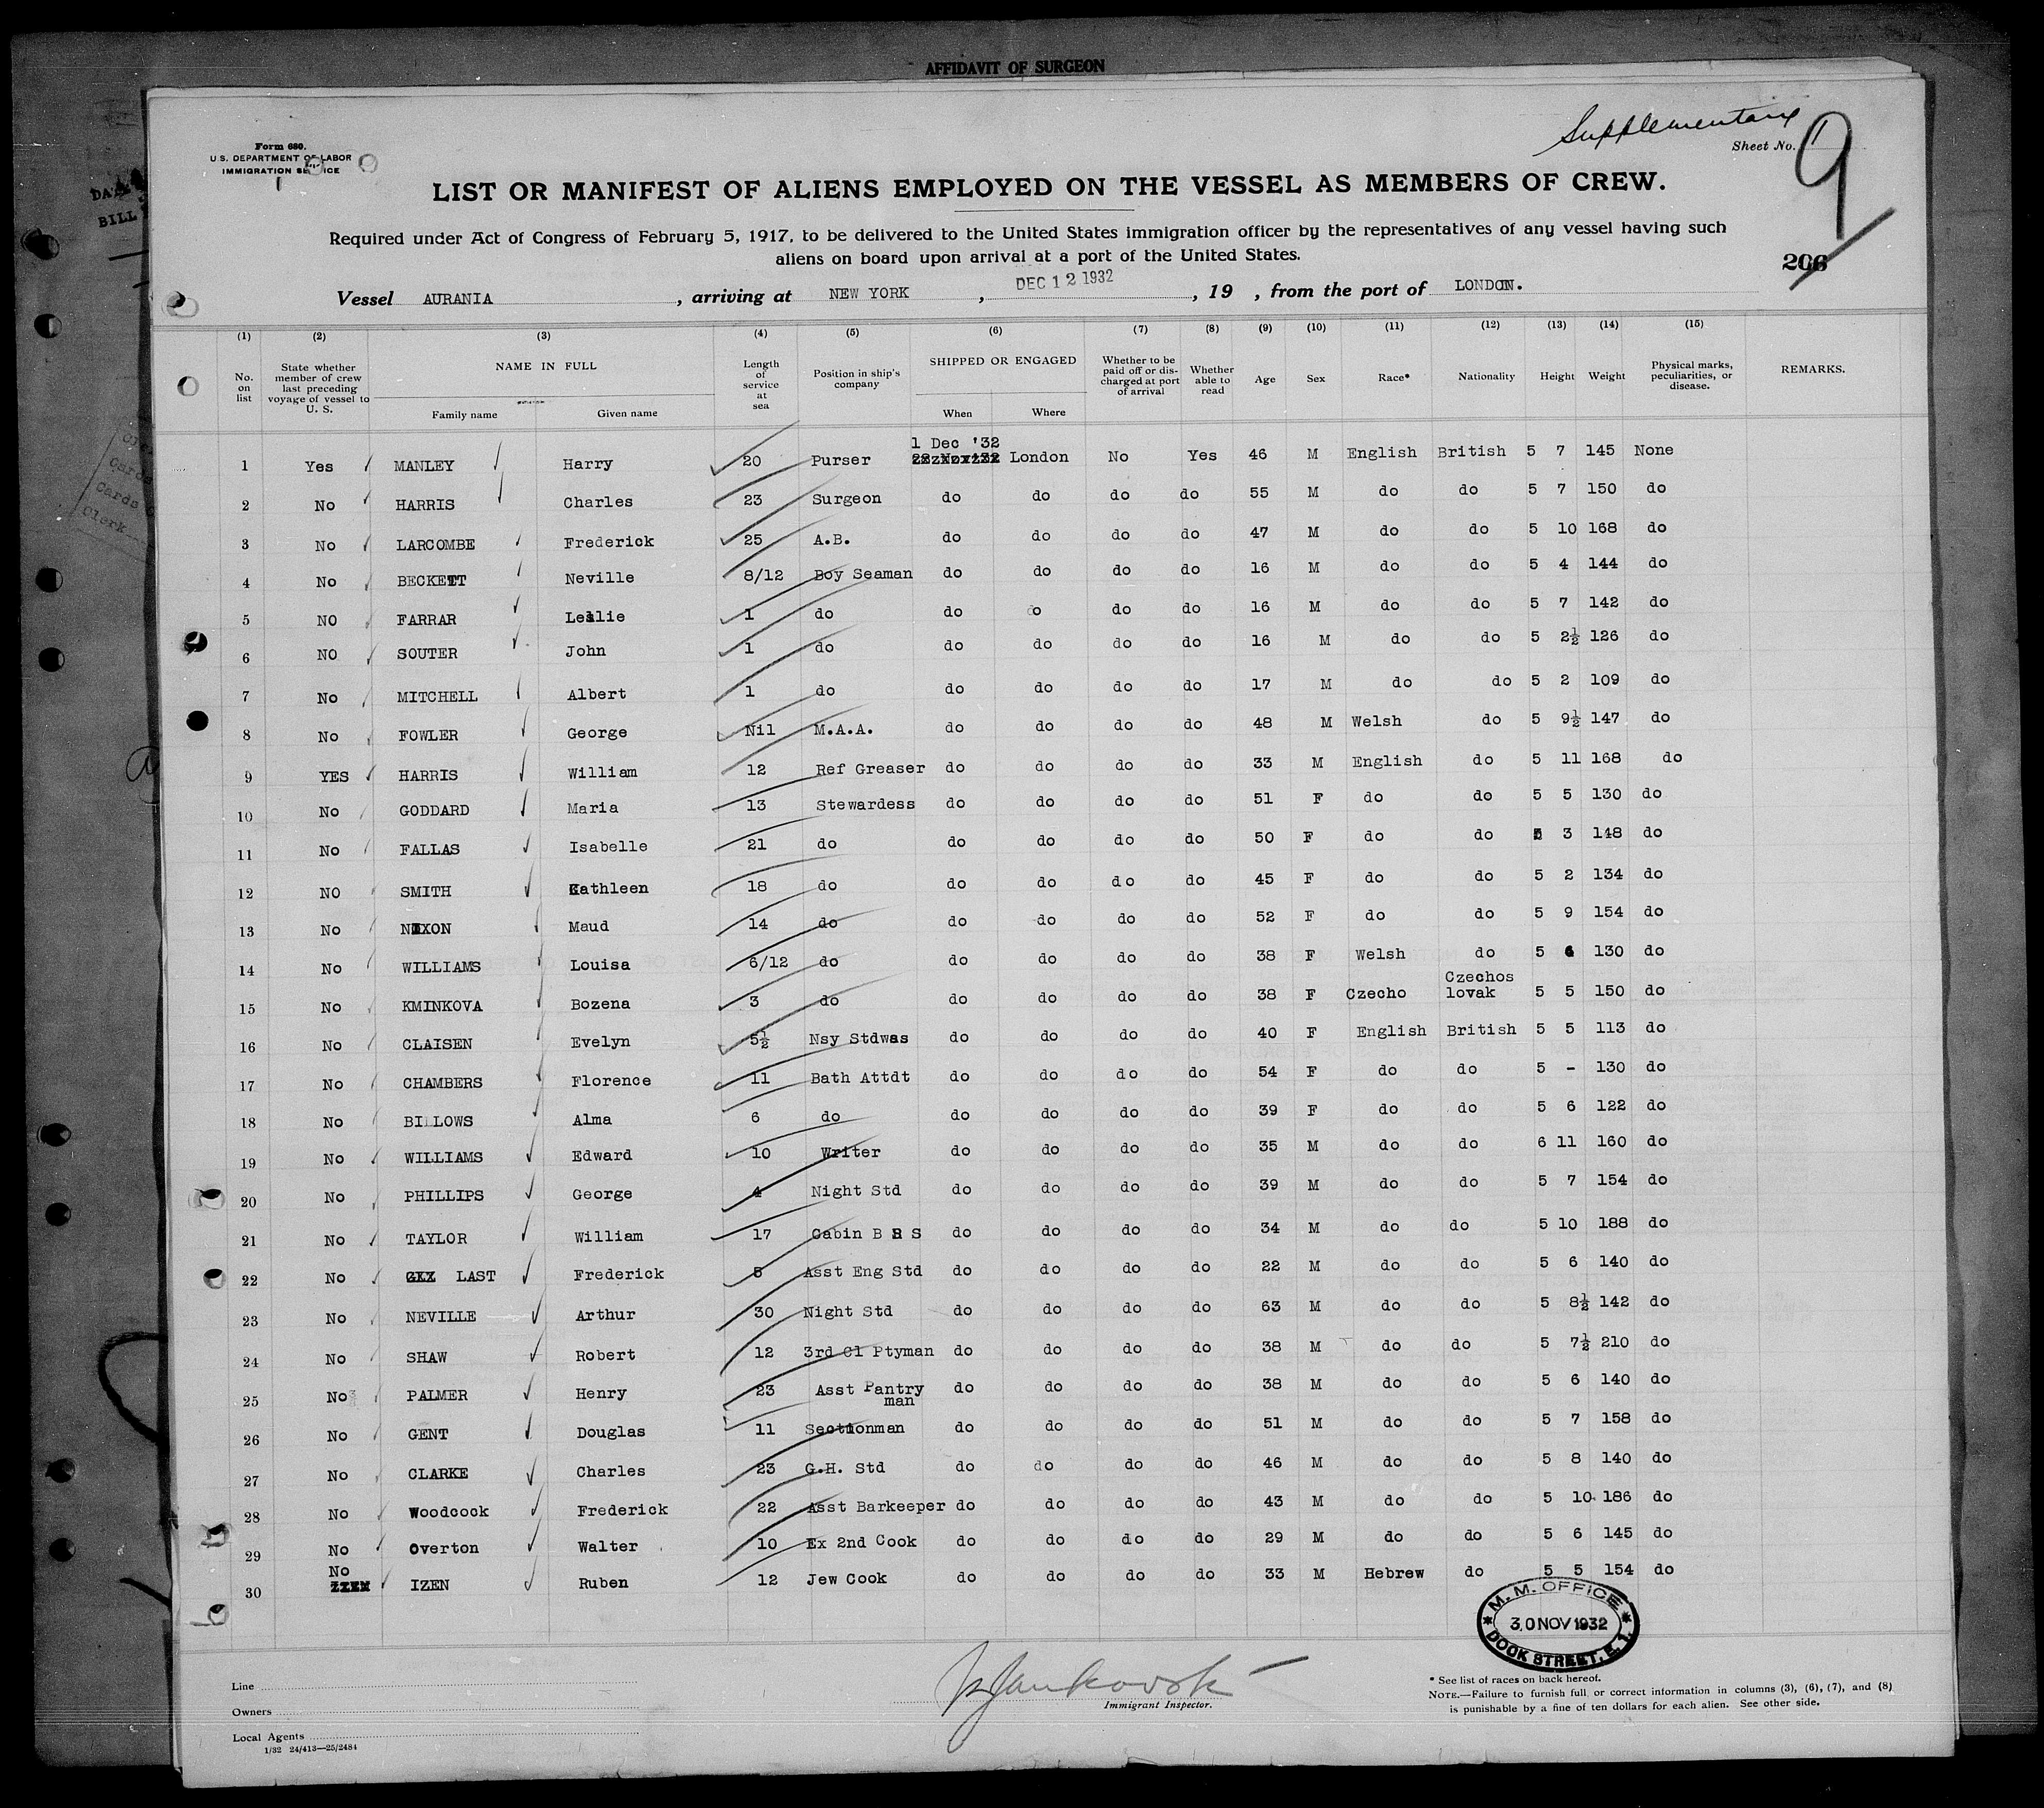 AFFIDAVIT OF SURGEON
Supplementary
Form 680.
U.S. DEPARTMENT OF LABOR
IMMIGRATION SERVICE
Sheet No. 1
9
LIST OR MANIFEST OF ALIENS EMPLOYED ON THE VESSEL AS MEMBERS OF CREW.
Required under Act of Congress of February 5, 1917, to be delivered to the United States immigration officer by the representatives of any vessel having such
aliens on board upon arrival at a port of the United States.
206
Vessel AURANIA, arriving at NEW YORK, DEC 12 1932, 19 , from the port of LONDON.
(1) (2) (3) (4) (5) (6) (7) (8) (9) (10) (11) (12) (13) (14) (15)
No. on list State whether member of crew last preceding voyage of vessel to U. S. NAME IN FULL Length of service at sea Position in ship's company SHIPPED OR ENGAGED Whether to be paid off or discharged at port of arrival Whether able to read Age Sex Race* Nationality Height Weight Physical marks, peculiarities, or disease. REMARKS.
Family name Given name When Where
1 Dec '32
1 Yes MANLEY Harry 20 Purser London No Yes 46 M English British 5 7 145 None
2 No HARRIS Charles 23 Surgeon do do do do 55 M do do 5 7 150 do
3 No LARCOMBE Frederick 25 A.B. do do do do 47 M do do 5 10 168 do
4 No BECKETT Neville 8/12 Boy Seaman do do do do 16 M do do 5 4 144 do
5 NO FARRAR Leslie 1 do do do do do 16 M do do 5 7 142 do
6 NO SOUTER John 1 do do do do do 16 M do do 5 2½ 126 do
7 No MITCHELL Albert 1 do do do do do 17 M do do 5 2 109 do
8 No FOWLER George Nil M.A.A. do do do do 48 M Welsh do 5 9½ 147 do
9 YES HARRIS William 12 Ref Greaser do do do do 33 M English do 5 11 168 do
10 No GODDARD Maria 13 Stewardess do do do do 51 F do do 5 5 130 do
11 No FALLAS Isabelle 21 do do do do do 50 F do do 5 3 148 do
12 NO SMITH Kathleen 18 do do do do do 45 F do do 5 2 134 do
13 No NIXON Maud 14 do do do do do 52 F do do 5 9 154 do
14 No WILLIAMS Louisa 6/12 do do do do do 38 F Welsh do 5 130 do
15 No KMINKOVA Bozena 3 do do do do do 38 F Czecho Czechos lovak 5 5 150 do
16 No CLAISEN Evelyn 5½ Nsy Stdwss do do do do 40 F English British 5 5 113 do
17 No CHAMBERS Florence 11 Bath Attdt do do do do 54 F do do 5 - 130 do
18 No BILLOWS Alma 6 do do do do do 39 F do do 5 6 122 do
19 No WILLIAMS Edward 10 Writer do do do do 35 M do do 6 11 160 do
20 No PHILLIPS George 4 Night Std do do do do 39 M do do 5 7 154 do
21 No TAYLOR William 17 Cabin B R S do do do do 34 M do do 5 10 188 do
22 No LAST Frederick 5 Asst Eng Std do do do do 22 M do do 5 6 140 do
23 No NEVILLE Arthur 30 Night Std do do do do 63 M do do 5 8½ 142 do
24 No SHAW Robert 12 3rd Cl Ptyman do do do do 38 M do do 5 7½ 210 do
25 No PALMER Henry 23 Asst Pantry man do do do do 38 M do do 5 6 140 do
26 No GENT Douglas 11 Sectionman do do do do 51 M do do 5 7 158 do
27 No CLARKE Charles 23 G.H. Std do do do do 46 M do do 5 8 140 do
28 No Woodcock Frederick 22 Asst Barkeeper do do do do 43 M do do 5 10 186 do
29 No Overton Walter 10 Ex 2nd Cook do do do do 29 M do do 5 6 145 do
30 No IZEN Ruben 12 Jew Cook do do do do 33 M Hebrew do 5 5 154 do
M. M. OFFICE
30 NOV 1932
DOCK STREET, E. 1.
Line
Owners
Local Agents
1/32 24/413—25/2484
Immigrant Inspector.
* See list of races on back hereof.
NOTE.—Failure to furnish full or correct information in columns (3), (6), (7), and (8)
is punishable by a fine of ten dollars for each alien. See other side.